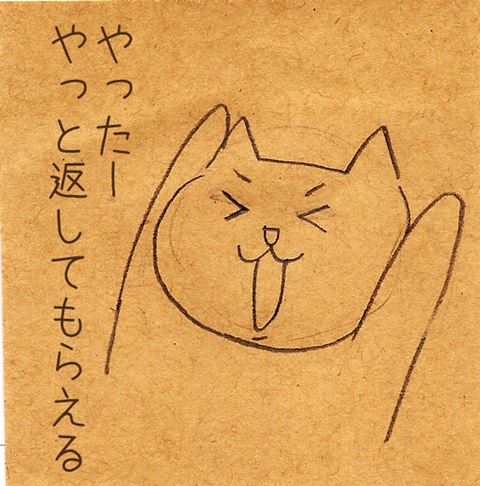 やったー
やっと返してもらえる